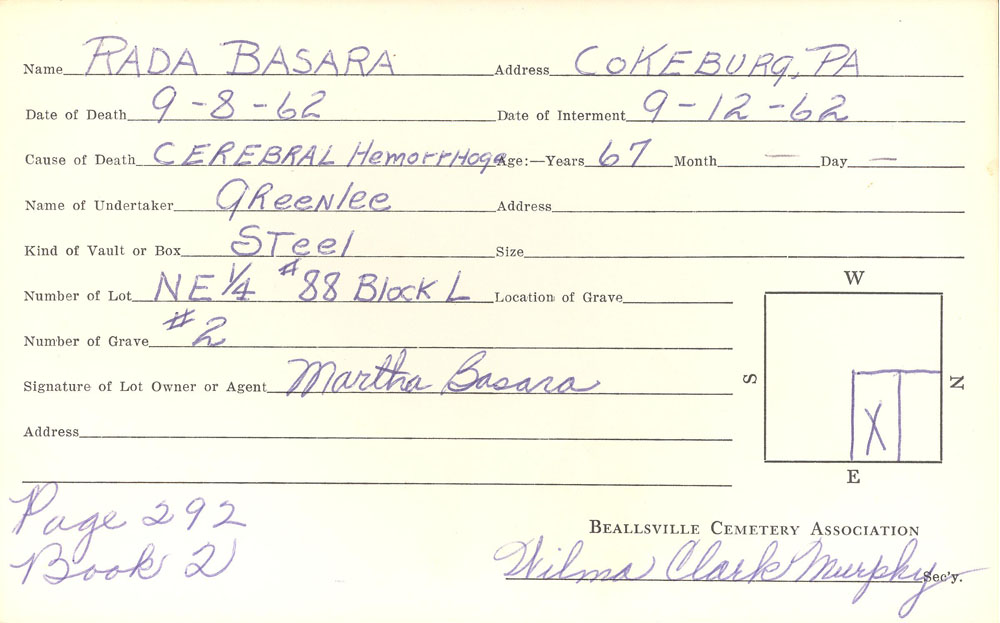 Name RADA BASARA Address COKEBURG, PA
Date of Death 9-8-62 Date of Interment 9-12-62
Cause of Death CEREBRAL HemorrHoge Age:—Years 67 Month — Day —
Name of Undertaker GReeNlee Address
Kind of Vault or Box STeel Size
Number of Lot NE 1/4 #88 Block L Location of Grave
Number of Grave #2
Signature of Lot Owner or Agent Martha Basara
Address
W
S
N
X
E
Page 292
Book 2
BEALLSVILLE CEMETERY ASSOCIATION
Wilma Clark Murphy Sec'y.